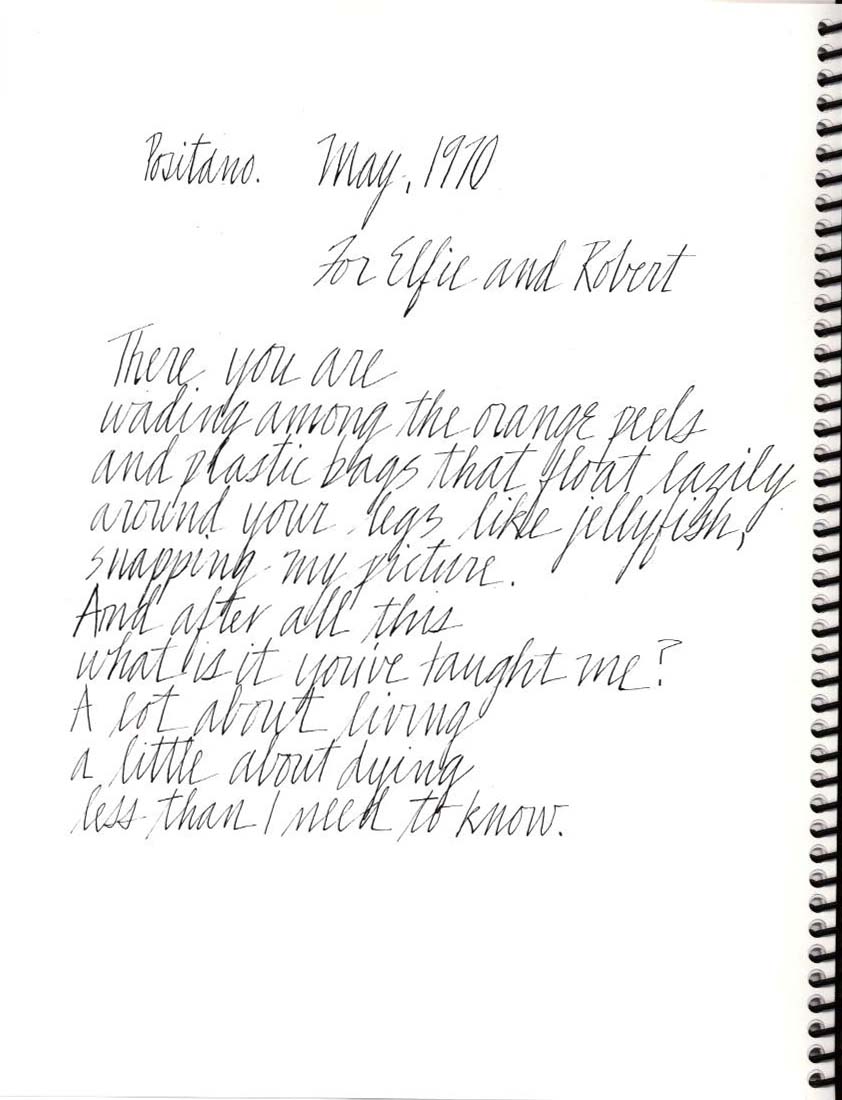 Positano. May, 1970
For Elfie and Robert
There you are
wading among the orange peels
and plastic bags that float lazily
around your legs like jellyfish,
snapping my picture.
And after all this
what is it you've taught me?
A lot about living
a little about dying
less than I need to know.